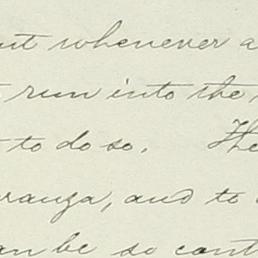 ut whenever a
run into the
t to do so. The
ranza, and to
an be so cont